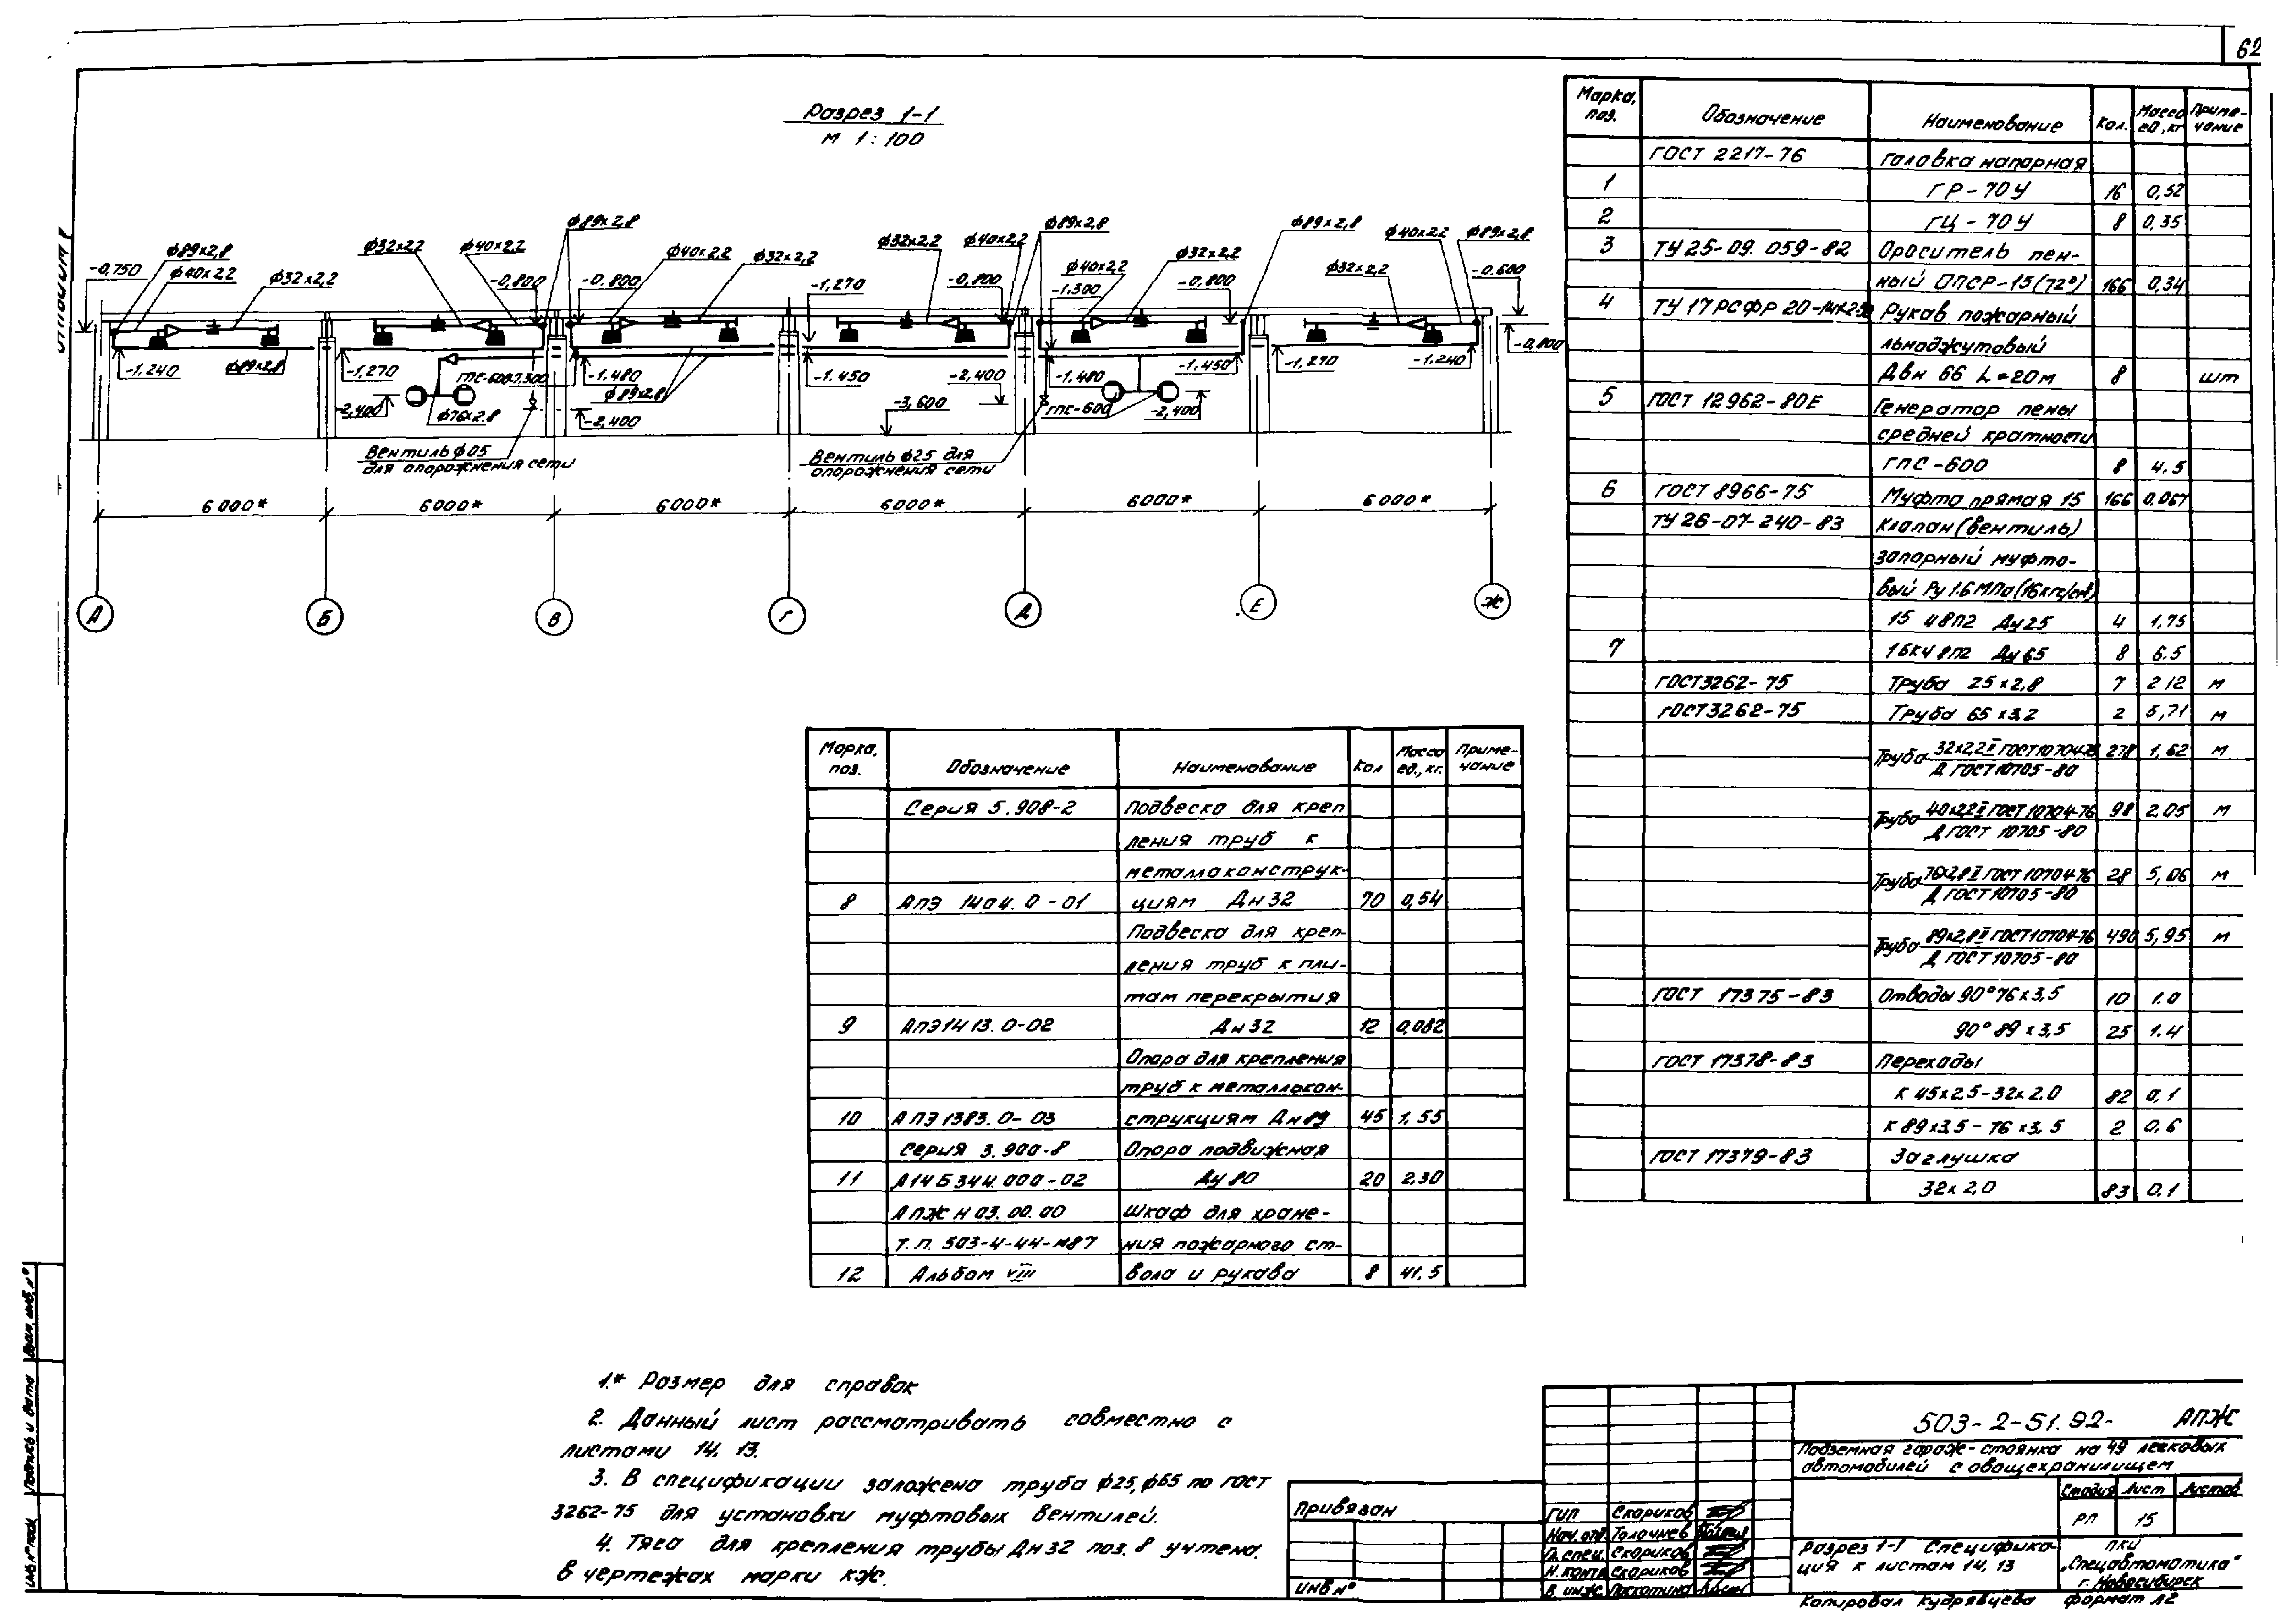 62
Разрез 1-1
М 1:100
ф89х2,8
ф40х2,2
ф32х2,2
ф32х2,2
ф40х2,2
ф89х2,8
ф40х2,2
ф32х2,2
ф32х2,2
ф40х2,2
ф89х2,8
ф40х2,2
ф32х2,2
ф89х2,8
ф32х2,2
ф40х2,2
ф89х2,8
-0,750
-0,800
-0,800
-1,270
-0,800
-1,300
-0,800
-0.600
-0,800
-1,240
ф89х2,8
-1,270
-1,480
ф89х2,8
-1.450
-2,400
-1,480
-1,450
-1,270
-1,240
-2,400
ф76х2.8
-2,400
-3,600
ГПС-600
-2,400
Вентиль ф05
для опорожнения сети
Вентиль ф25 для
опорожнения сети
6000*
6000*
6000*
6000*
6000*
6000*
А
Б
В
Г
Д
Е
Ж
Марка, поз.
Обозначение
Наименование
Кол.
Масса ед., кг
Приме-чание
ГОСТ 2217-76 Головка напорная
1 ГР-70У 16 0,52
2 ГЦ-70У 8 0,35
3 ТУ 25-09.059-82 Ороситель пен-
ный ОПСР-15(72°) 166 0,34
4 ТУ 17 РСФР 20- Рукав пожарный
льноджутовый
Двн 66 L=20м 8 шт
5 ГОСТ 12962-80Е Генератор пены
средней кратности
ГПС-600 8 4,5
6 ГОСТ 8966-75 Муфта прямая 15 166 0,067
ТУ 26-07-240-83 Клапан (вентиль)
запорный муфто-
вый Ру 1.6 МПа (16кгс/см²)
15 ч 8п2 Ду 25 4 1,75
7 15кч 8п2 Ду 65 8 6.5
ГОСТ 3262-75 Труба 25х2,8 7 2 12 м
ГОСТ 3262-75 Труба 65х3.2 2 5,71 м
Труба 32х2,2 II ГОСТ 10704-76 278 1,62 м
Д ГОСТ 10705-80
Труба 40х2,2 II ГОСТ 10704-76 98 2.05 м
Д ГОСТ 10705-80
Труба 76х2,8 II ГОСТ 10704-76 28 5,06 м
Д ГОСТ 10705-80
Труба 89х2,8 II ГОСТ 10704-76 490 5,95 м
Д ГОСТ 10705-80
ГОСТ 17375-83 Отводы 90° 76х3,5 10 1.0
90° 89х3,5 25 1.4
ГОСТ 17378-83 Переходы
К 45х2.5-32х2.0 82 0,1
К 89х3.5-76х3.5 2 0,6
ГОСТ 17379-83 Заглушка
32х2,0 83 0,1
Марка, поз.
Обозначение
Наименование
Кол
Масса ед., кг.
Приме-чание
Серия 5.908-2 Подвеска для креп
ления труб к
металлоконструк-
8 АПЭ 1404.0-01 циям Дн 32 70 0,54
Подвеска для креп-
ления труб к пли-
там перекрытия
9 АПЭ 1413.0-02 Дн 32 12 0,082
Опора для крепления
труб к металлокон-
10 АПЭ 1383.0-03 струкциям Дн 89 45 1,55
Серия 3.900-8 Опора подвижная
11 А14Б 344.000-02 Ду 80 20 2.30
АПЖ Н 03.00.00 Шкаф для хране-
Т.П. 503-4-44-м87 ния пожарного ст-
12 Альбом VIII вола и рукава 8 41,5
1.* Размер для справок
2. Данный лист рассматривать совместно с
листами 14, 13.
3. В спецификации заложена труба ф25, ф65 по гост
3262-75 для установки муфтовых вентилей.
4. Тяга для крепления трубы Дн 32 поз. 8 учтена
в чертежах марки КЖ.
Привязан
ИНВ №
ГИП Скориков
Нач. отд. Толочнев
Гл. спец. Скориков
Н. контр. Скориков
В. инж.
503-2-51.92- АПЖ
Подземная гараж-стоянка на 49 легковых
автомобилей с овощехранилищем
Стадия Лист Листов
РП 15
Разрез 1-1 Специфика-
ция к листам 14, 13
ПКИ
"Спецавтоматика"
г. Новосибирск
Копировал Кудрявцева формат А2
Взам. инв. №
Подпись и дата
Инв. № подл.